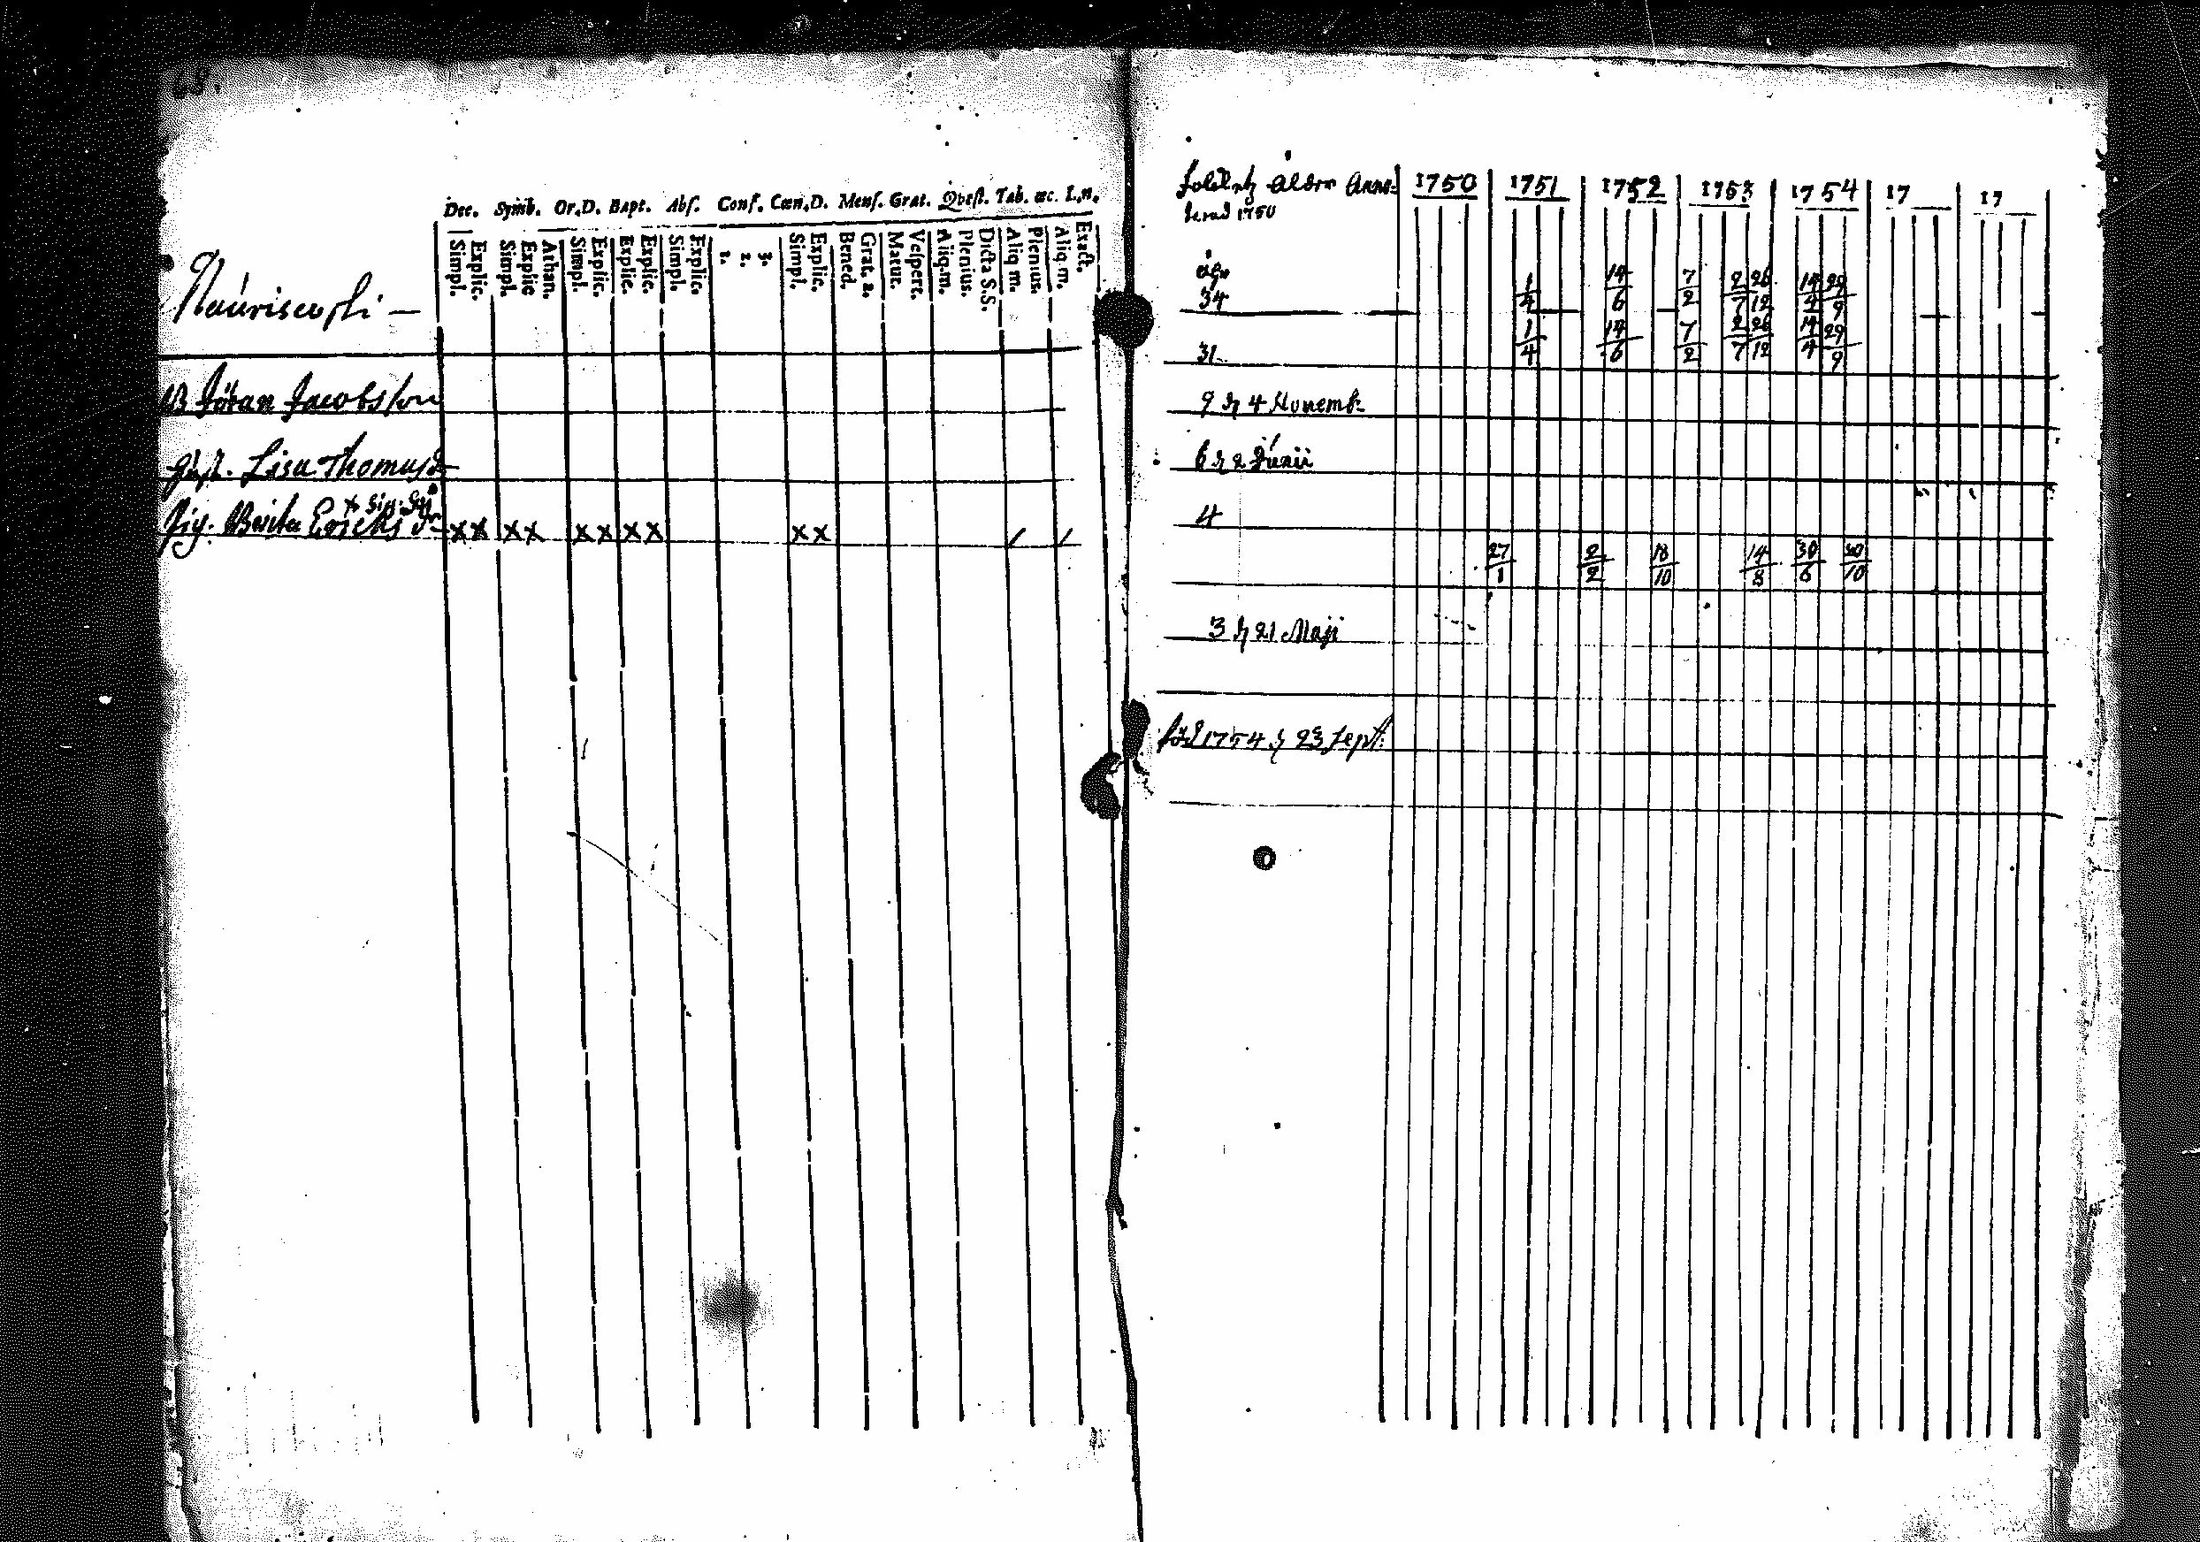 68.
Dec. Symb. Or.D. Bapt. Abs. Conf. Cœn.D. Mens. Grat. Qvest. Tab. œc. L.n.
Simpl. Explic. Simpl. Explic Athan. Simpl. Explic. Explic. Explic. Simpl. Explic. 1. 2. 3. Simpl. Explic. Bened. Grat. 2. Matur. Vespert. Aliq.m. Plenius. Dicta S.S. Aliq m. Plenius. Aliq.m. Exact.
Nauriscoski —
B Johan Jacobsson
Gift. Lisa Thomasd
Pig. Berita Erichs dr
x x x x x x x x x x / /
Folckets Ålder Anno 1750 1751 1752 1753 1754 17 17
1750
34 1/4 14/6 7/2 2/7 26/12 14/4 29/9
31 1/4 14/6 7/2 2/7 26/12 14/4 29/9
9 d 4 Novemb.
6 d 2 Junii
4
27/1 2/2 18/10 14/8 30/6 30/10
3 d 21 Maji
född 1754 d 23 Sept.